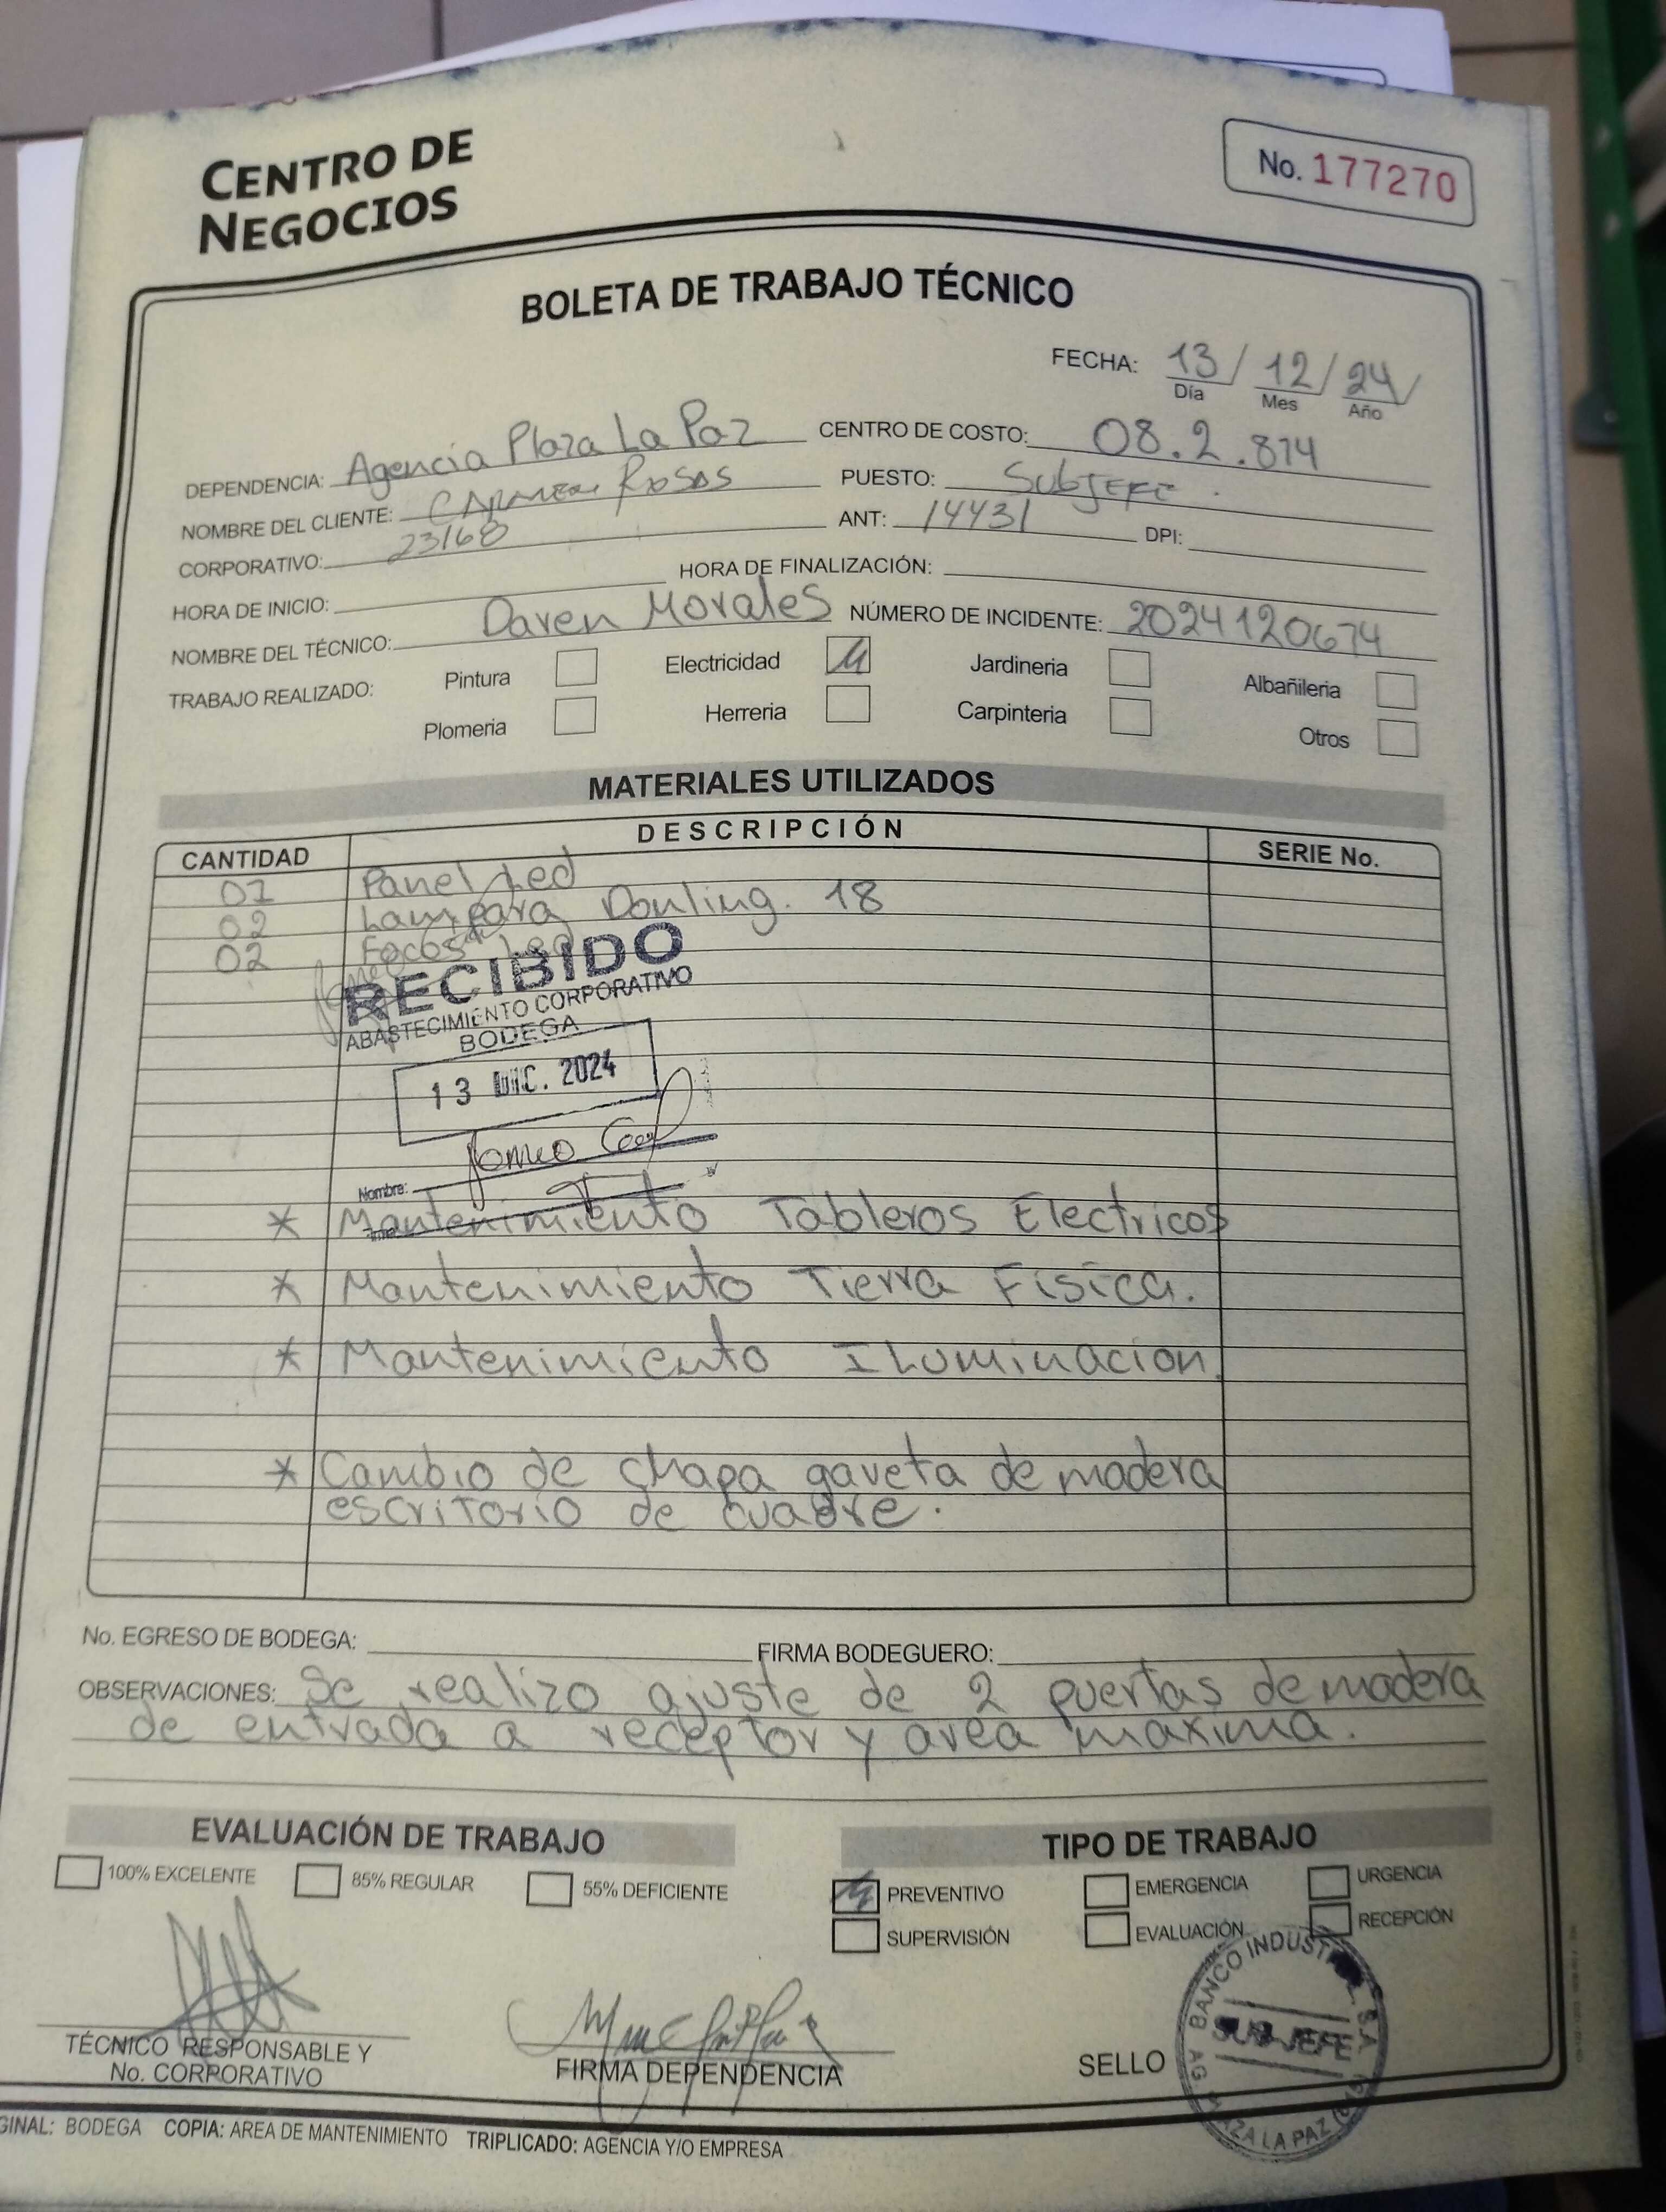 CENTRO DE
NEGOCIOS
No. 177270
BOLETA DE TRABAJO TÉCNICO
FECHA: 13 / 12 / 24 /
Día Mes Año
DEPENDENCIA: Agencia Plaza La Paz CENTRO DE COSTO: 08.2.814
NOMBRE DEL CLIENTE: Carmen Rosas PUESTO: SubJEFE.
CORPORATIVO: 23168 ANT: 14431 DPI:
HORA DE INICIO: HORA DE FINALIZACIÓN:
NOMBRE DEL TÉCNICO: Daven Morales NÚMERO DE INCIDENTE: 2024120674
TRABAJO REALIZADO: Pintura Electricidad Jardineria Albañileria
Plomeria Herreria Carpinteria Otros
MATERIALES UTILIZADOS
CANTIDAD DESCRIPCIÓN SERIE No.
01 Panel Led
02 Lampara Donling. 18
02 Focos Led
RECIBIDO
ABASTECIMIENTO CORPORATIVO
BODEGA
13 DIC. 2024
Nombre:
* Mantenimiento Tableros Electricos
* Mantenimiento Tierra Fisica.
* Mantenimiento Iluminacion
* Cambio de chapa gaveta de madera
escritorio de cuadre.
No. EGRESO DE BODEGA: FIRMA BODEGUERO:
OBSERVACIONES: Se realizo ajuste de 2 puertas de madera
de entrada a receptor y area maxima.
EVALUACIÓN DE TRABAJO
100% EXCELENTE 85% REGULAR 55% DEFICIENTE
TIPO DE TRABAJO
PREVENTIVO EMERGENCIA URGENCIA
SUPERVISIÓN EVALUACIÓN RECEPCIÓN
TÉCNICO RESPONSABLE Y
No. CORPORATIVO
FIRMA DEPENDENCIA
SELLO
BANCO INDUSTRIAL, S.A.
SUB-JEFE
AG. PLAZA LA PAZ
GINAL: BODEGA COPIA: AREA DE MANTENIMIENTO TRIPLICADO: AGENCIA Y/O EMPRESA